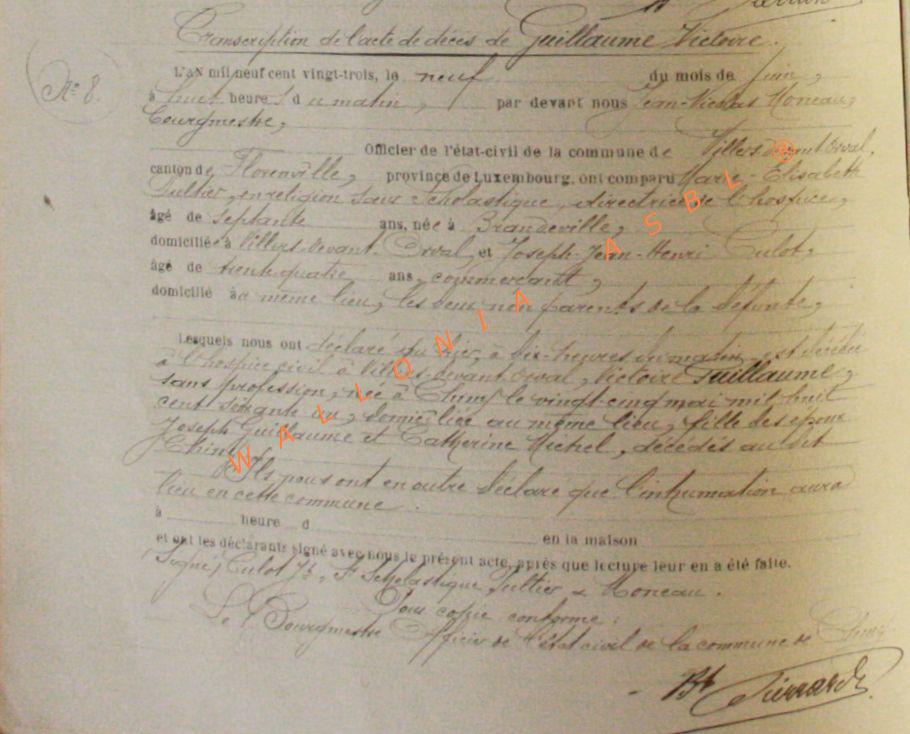 Transcription de l'acte de décès de Guillaume Victoire.
N° 8.
L'AN mil neuf cent vingt-trois, le neuf du mois de Juin,
à huit heures du matin, par devant nous Jean-Nicolas Moneau,
Bourgmestre,
Officier de l'état-civil de la commune de Villers devant Orval,
canton de Florenville, province de Luxembourg, ont comparu Marie-Elisabeth
en religion Sœur Scholastique, directrice de l'hospice,
âgé de septante ans, née à Brandeville,
domiciliée à Villers devant Orval, et Joseph-Jean-Henri Culot,
âgé de trente quatre ans, commerçant,
domicilié au même lieu, les deux non parents de la défunte,
Lesquels nous ont déclaré qu'hier, à dix heures du matin, est décédée
à l'hospice civil à Villers devant Orval, Victoire Guillaume,
sans profession, née à Chiny le vingt cinq mai mil huit
cent soixante un, domiciliée au même lieu, fille des époux
Joseph Guillaume et Catherine Michel, décédés au dit
Chiny.
Ils nous ont en outre déclaré que l'inhumation aura
lieu en cette commune.
à heure d en la maison
et ont les déclarants signé avec nous le présent acte, après que lecture leur en a été faite.
Signé, Culot Jh, Sr Scholastique & Moneau.
Pour copie conforme:
Le Bourgmestre Officier de l'état civil de la commune de Chiny
Pierrard
WALLONIA ASBL ®